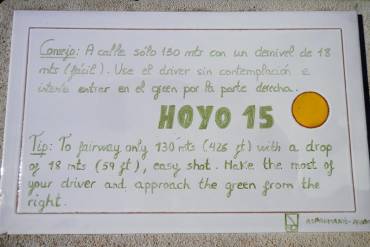 Consejo: A calle sólo 130 mts con un desnivel de 18
mts (fácil). Use el driver sin contemplación e
intente entrar en el green por la parte derecha.
HOYO 15
Tip: To fairway only 130 mts (426 ft) with a drop
of 18 mts (59 ft), easy shot. Make the most of
your driver and approach the green from the
right.